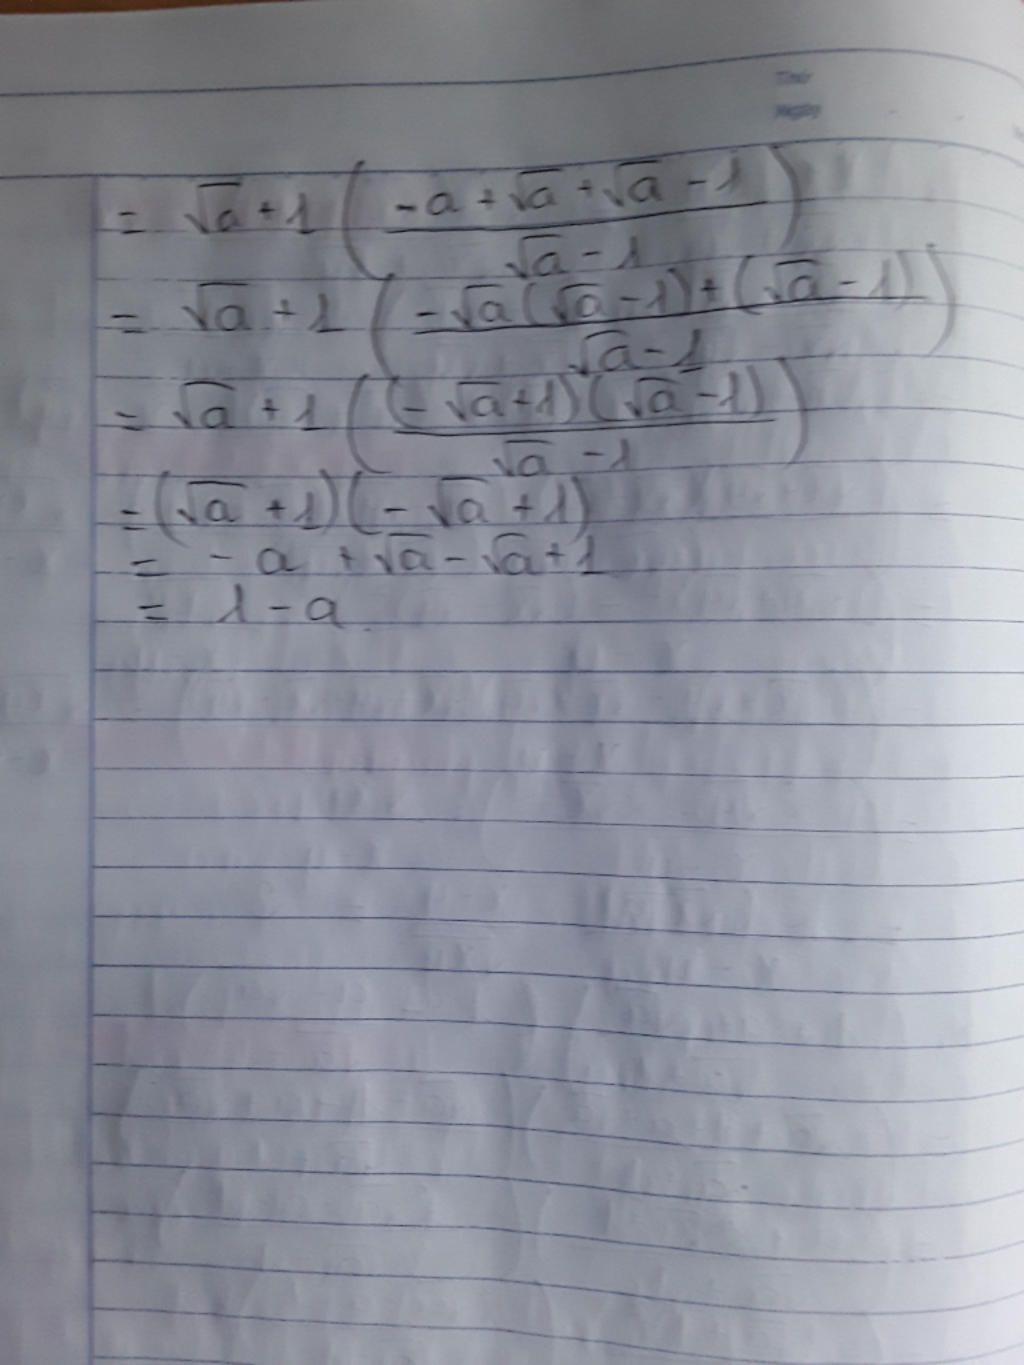 Thứ
Ngày
= √a + 1 ( (-a + √a + √a - 1) / (√a - 1) )
= √a + 1 ( (-√a (√a - 1) + (√a - 1)) / (√a - 1) )
= √a + 1 ( ((-√a + 1)(√a - 1)) / (√a - 1) )
= (√a + 1)(-√a + 1)
= -a + √a - √a + 1
= 1 - a